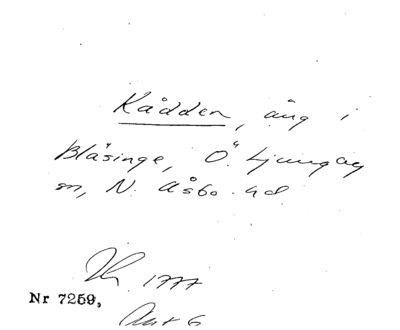 Kådden, äng i
Blåsinge, Ö. Ljungby
sn, N. Åsbo hd
1777
Nr 7259,
Akt 6